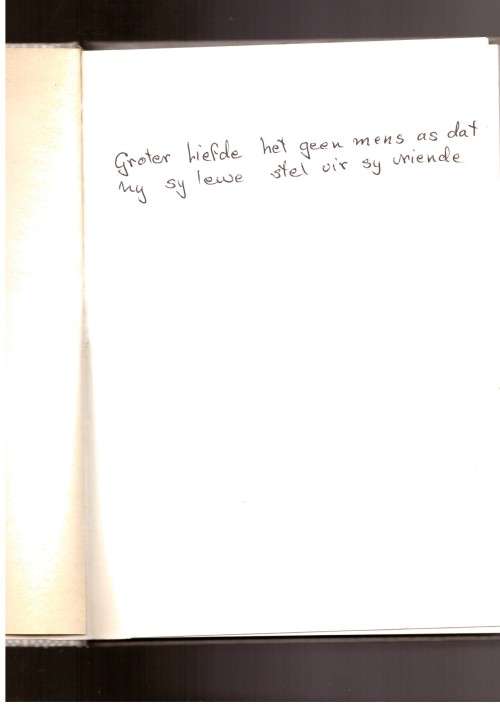 Groter liefde het geen mens as dat
hy sy lewe stel vir sy vriende